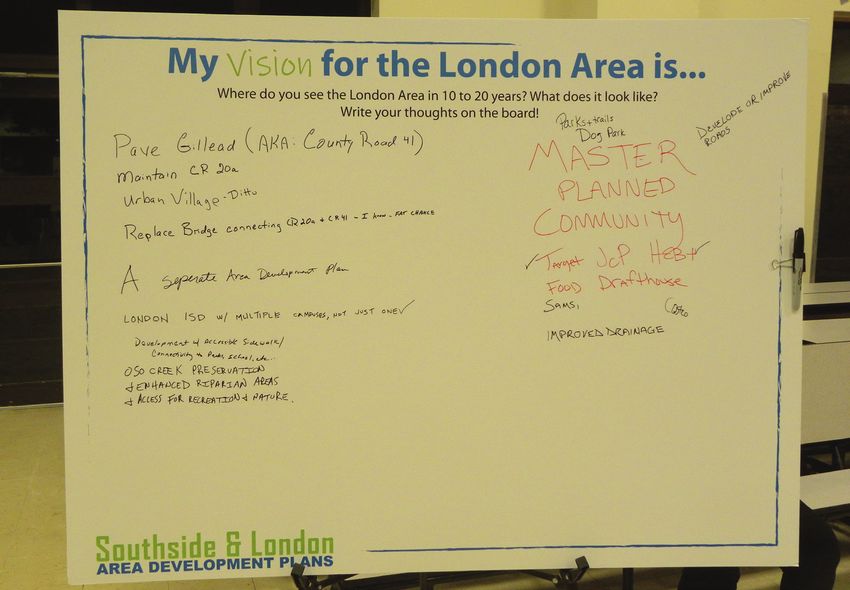 My Vision for the London Area is...
Where do you see the London Area in 10 to 20 years? What does it look like?
Write your thoughts on the board!
Pave Gillead (AKA: County Road 41)
Maintain CR 20a
Urban Village - Ditto
Replace Bridge connecting CR 20a + CR 41 - I know - FAT CHANCE
A seperate Area Development Plan
LONDON ISD W/ MULTIPLE CAMPUSES, NOT JUST ONE ✓
Development w/ Accessible Sidewalk/
Connectivity to Parks, School, etc...
OSO CREEK PRESERVATION
& ENHANCED RIPARIAN AREAS
& ACCESS FOR RECREATION & NATURE.
Parks + trails
Dog Park
DEVELOPE OR IMPROVE
ROADS
MASTER
PLANNED
COMMUNITY
✓ Target JCP HEB+ ✓
FOOD Drafthouse
Sams,
IMPROVED DRAINAGE
Southside & London
AREA DEVELOPMENT PLANS